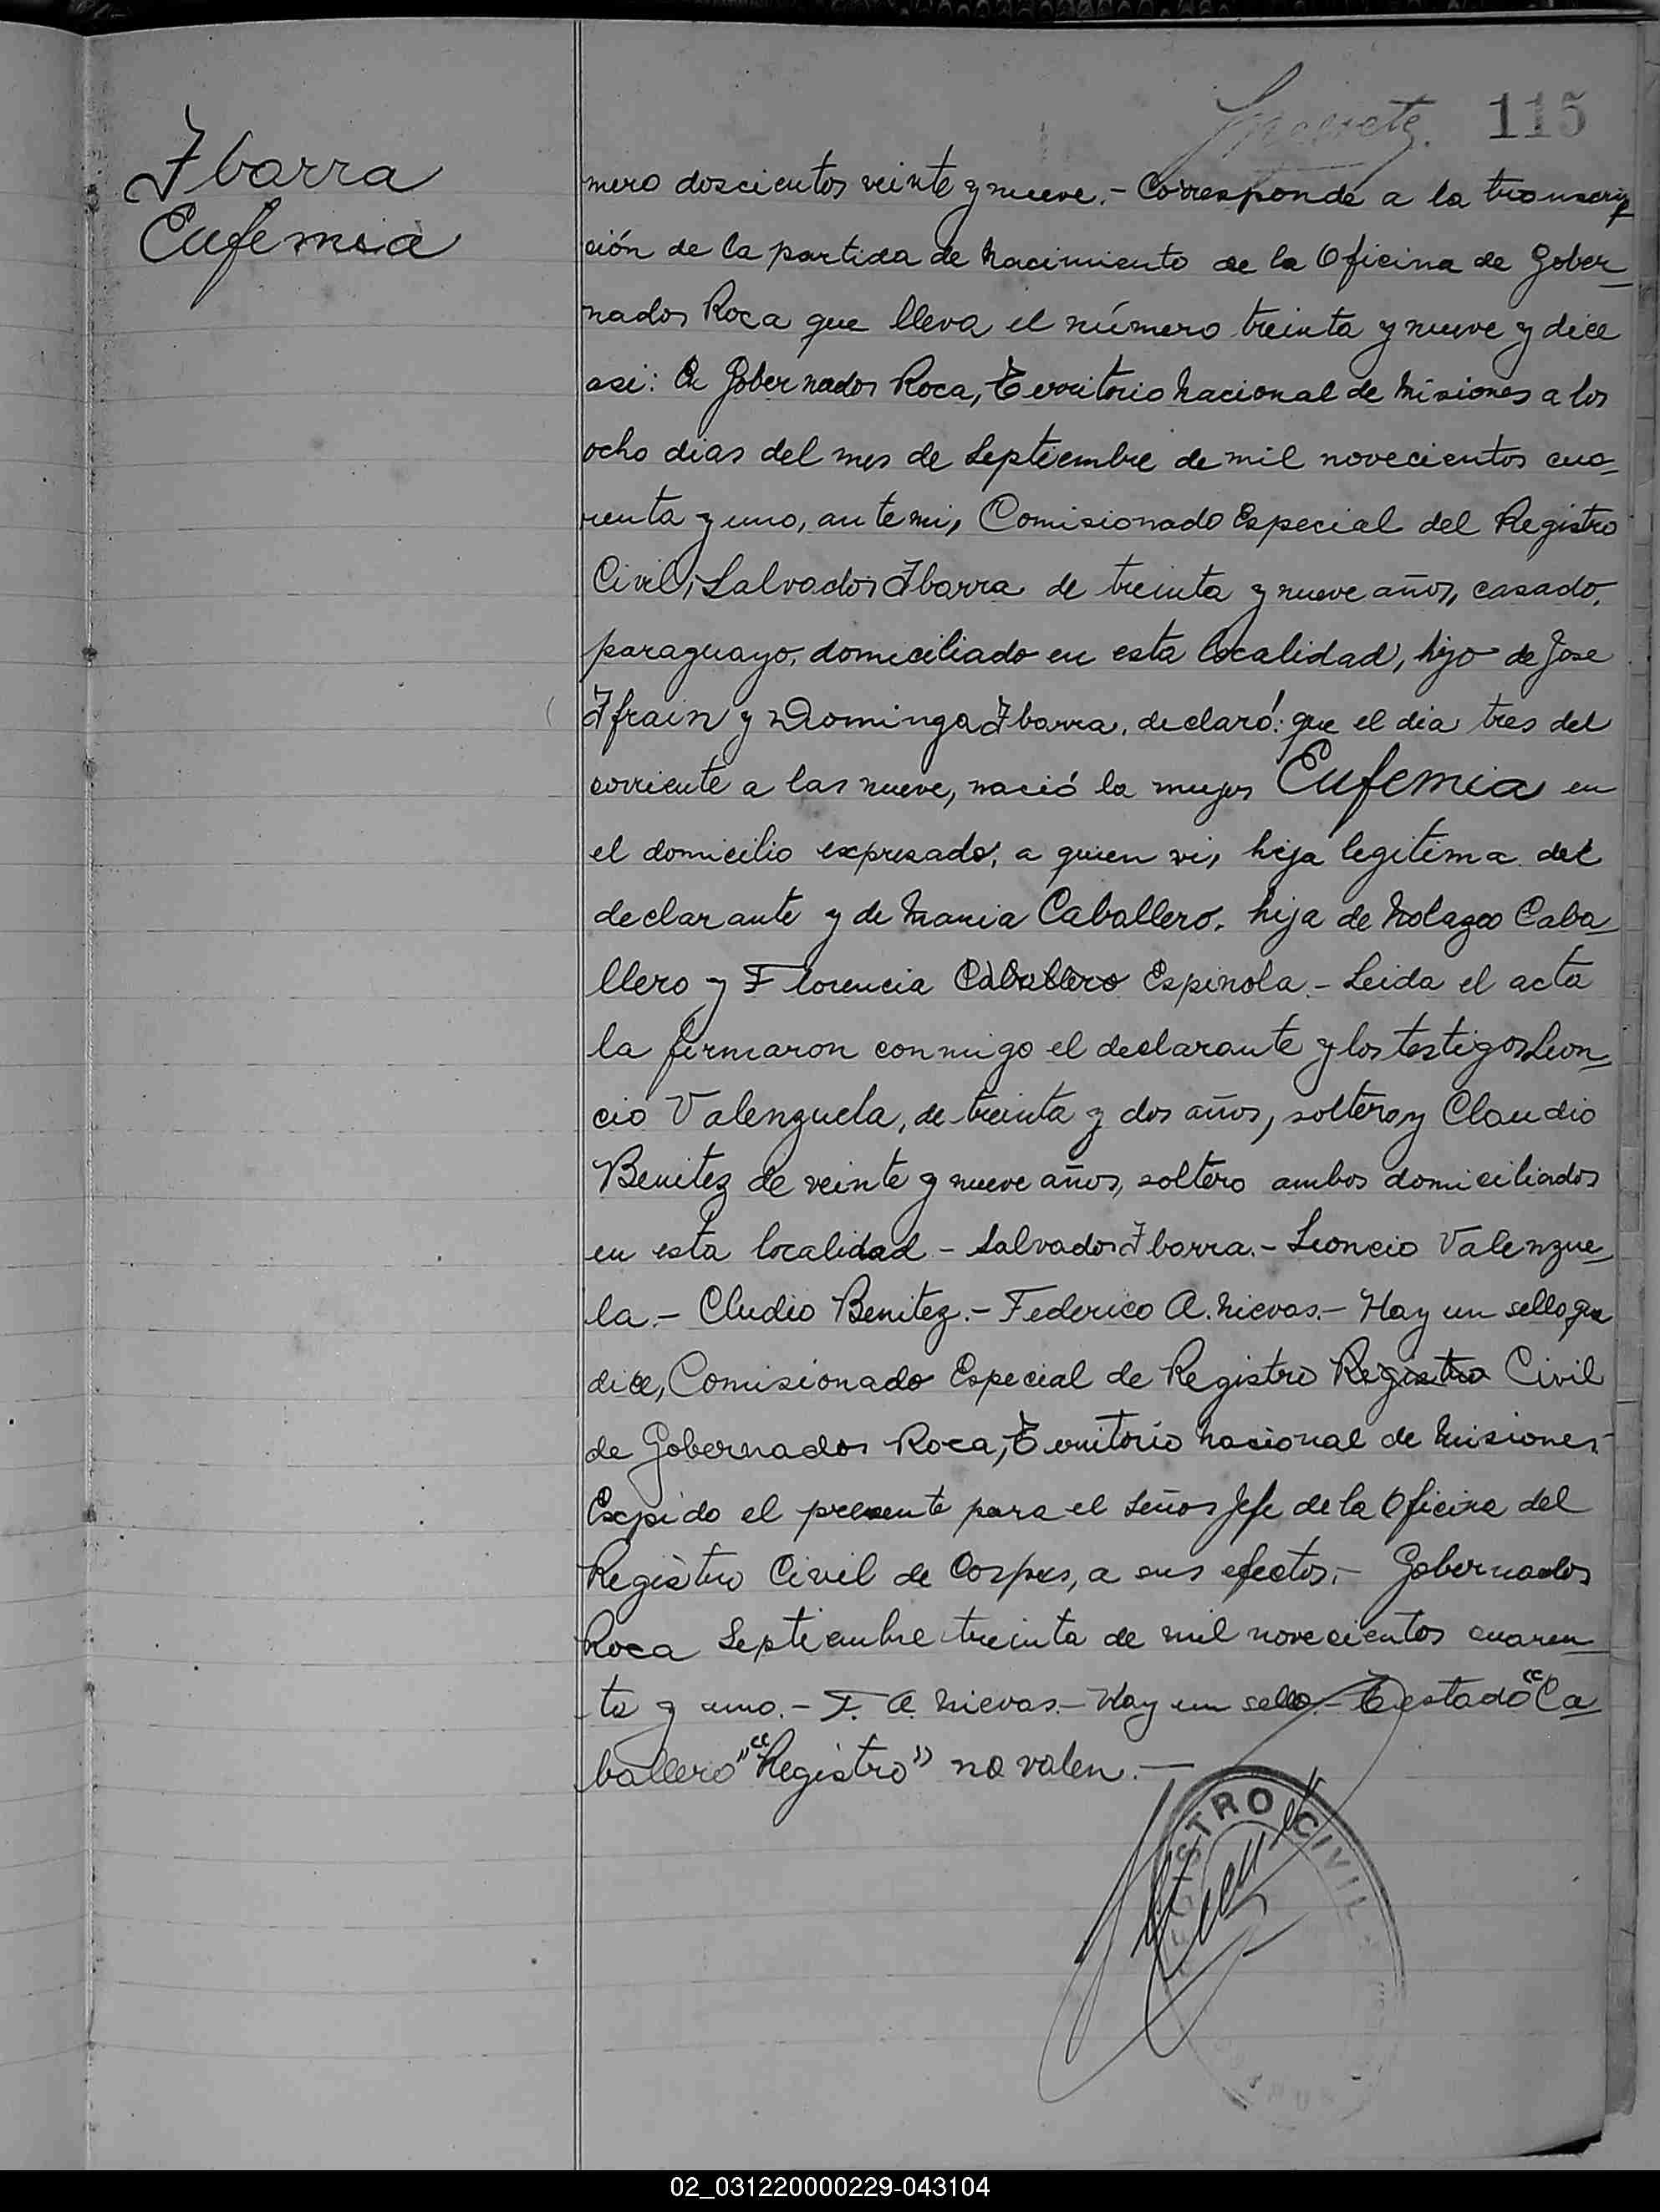 115
Ibarra
Eufemia
mero doscientos veinte y nueve.- Corresponde a la transcrip
ción de la partida de nacimiento de la Oficina de Gober-
nador Roca que lleva el número treinta y nueve y dice
asi: En Gobernador Roca, Territorio Nacional de Misiones a los
ocho dias del mes de Septiembre de mil novecientos cua-
renta y uno, ante mi, Comisionado Especial del Registro
Civil, Salvador Ibarra de treinta y nueve años, casado,
paraguayo, domiciliado en esta localidad, hijo de Jose
Ifrain y Dominga Ibarra, declaró: que el dia tres del
corriente a las nueve, nació la mujer Eufemia en
el domicilio expresado, a quien vi, hija legitima del
declarante y de Maria Caballero, hija de Nolazco Caba-
llero y Florencia Caballero Espinola.- Leida el acta
la firmaron conmigo el declarante y los testigos Leon-
cio Valenzuela, de treinta y dos años, soltero y Claudio
Benitez de veinte y nueve años, soltero ambos domiciliados
en esta localidad - Salvador Ibarra.- Leoncio Valenzue-
la.- Cludio Benitez.- Federico A. Nievas.- Hay un sello que
dice, Comisionado Especial de Registro Registro Civil
de Gobernador Roca, Territorio Nacional de Misiones.-
Expido el presente para el Señor Jefe de la Oficina del
Registro Civil de Corpus, a sus efectos.- Gobernador
Roca Septiembre treinta de mil novecientos cuaren-
ta y uno.- F. A. Nievas.- Hay un sello.- Testado "Ca
ballero" "Registro" no valen.-
REGISTRO CIVIL
02_031220000229-043104